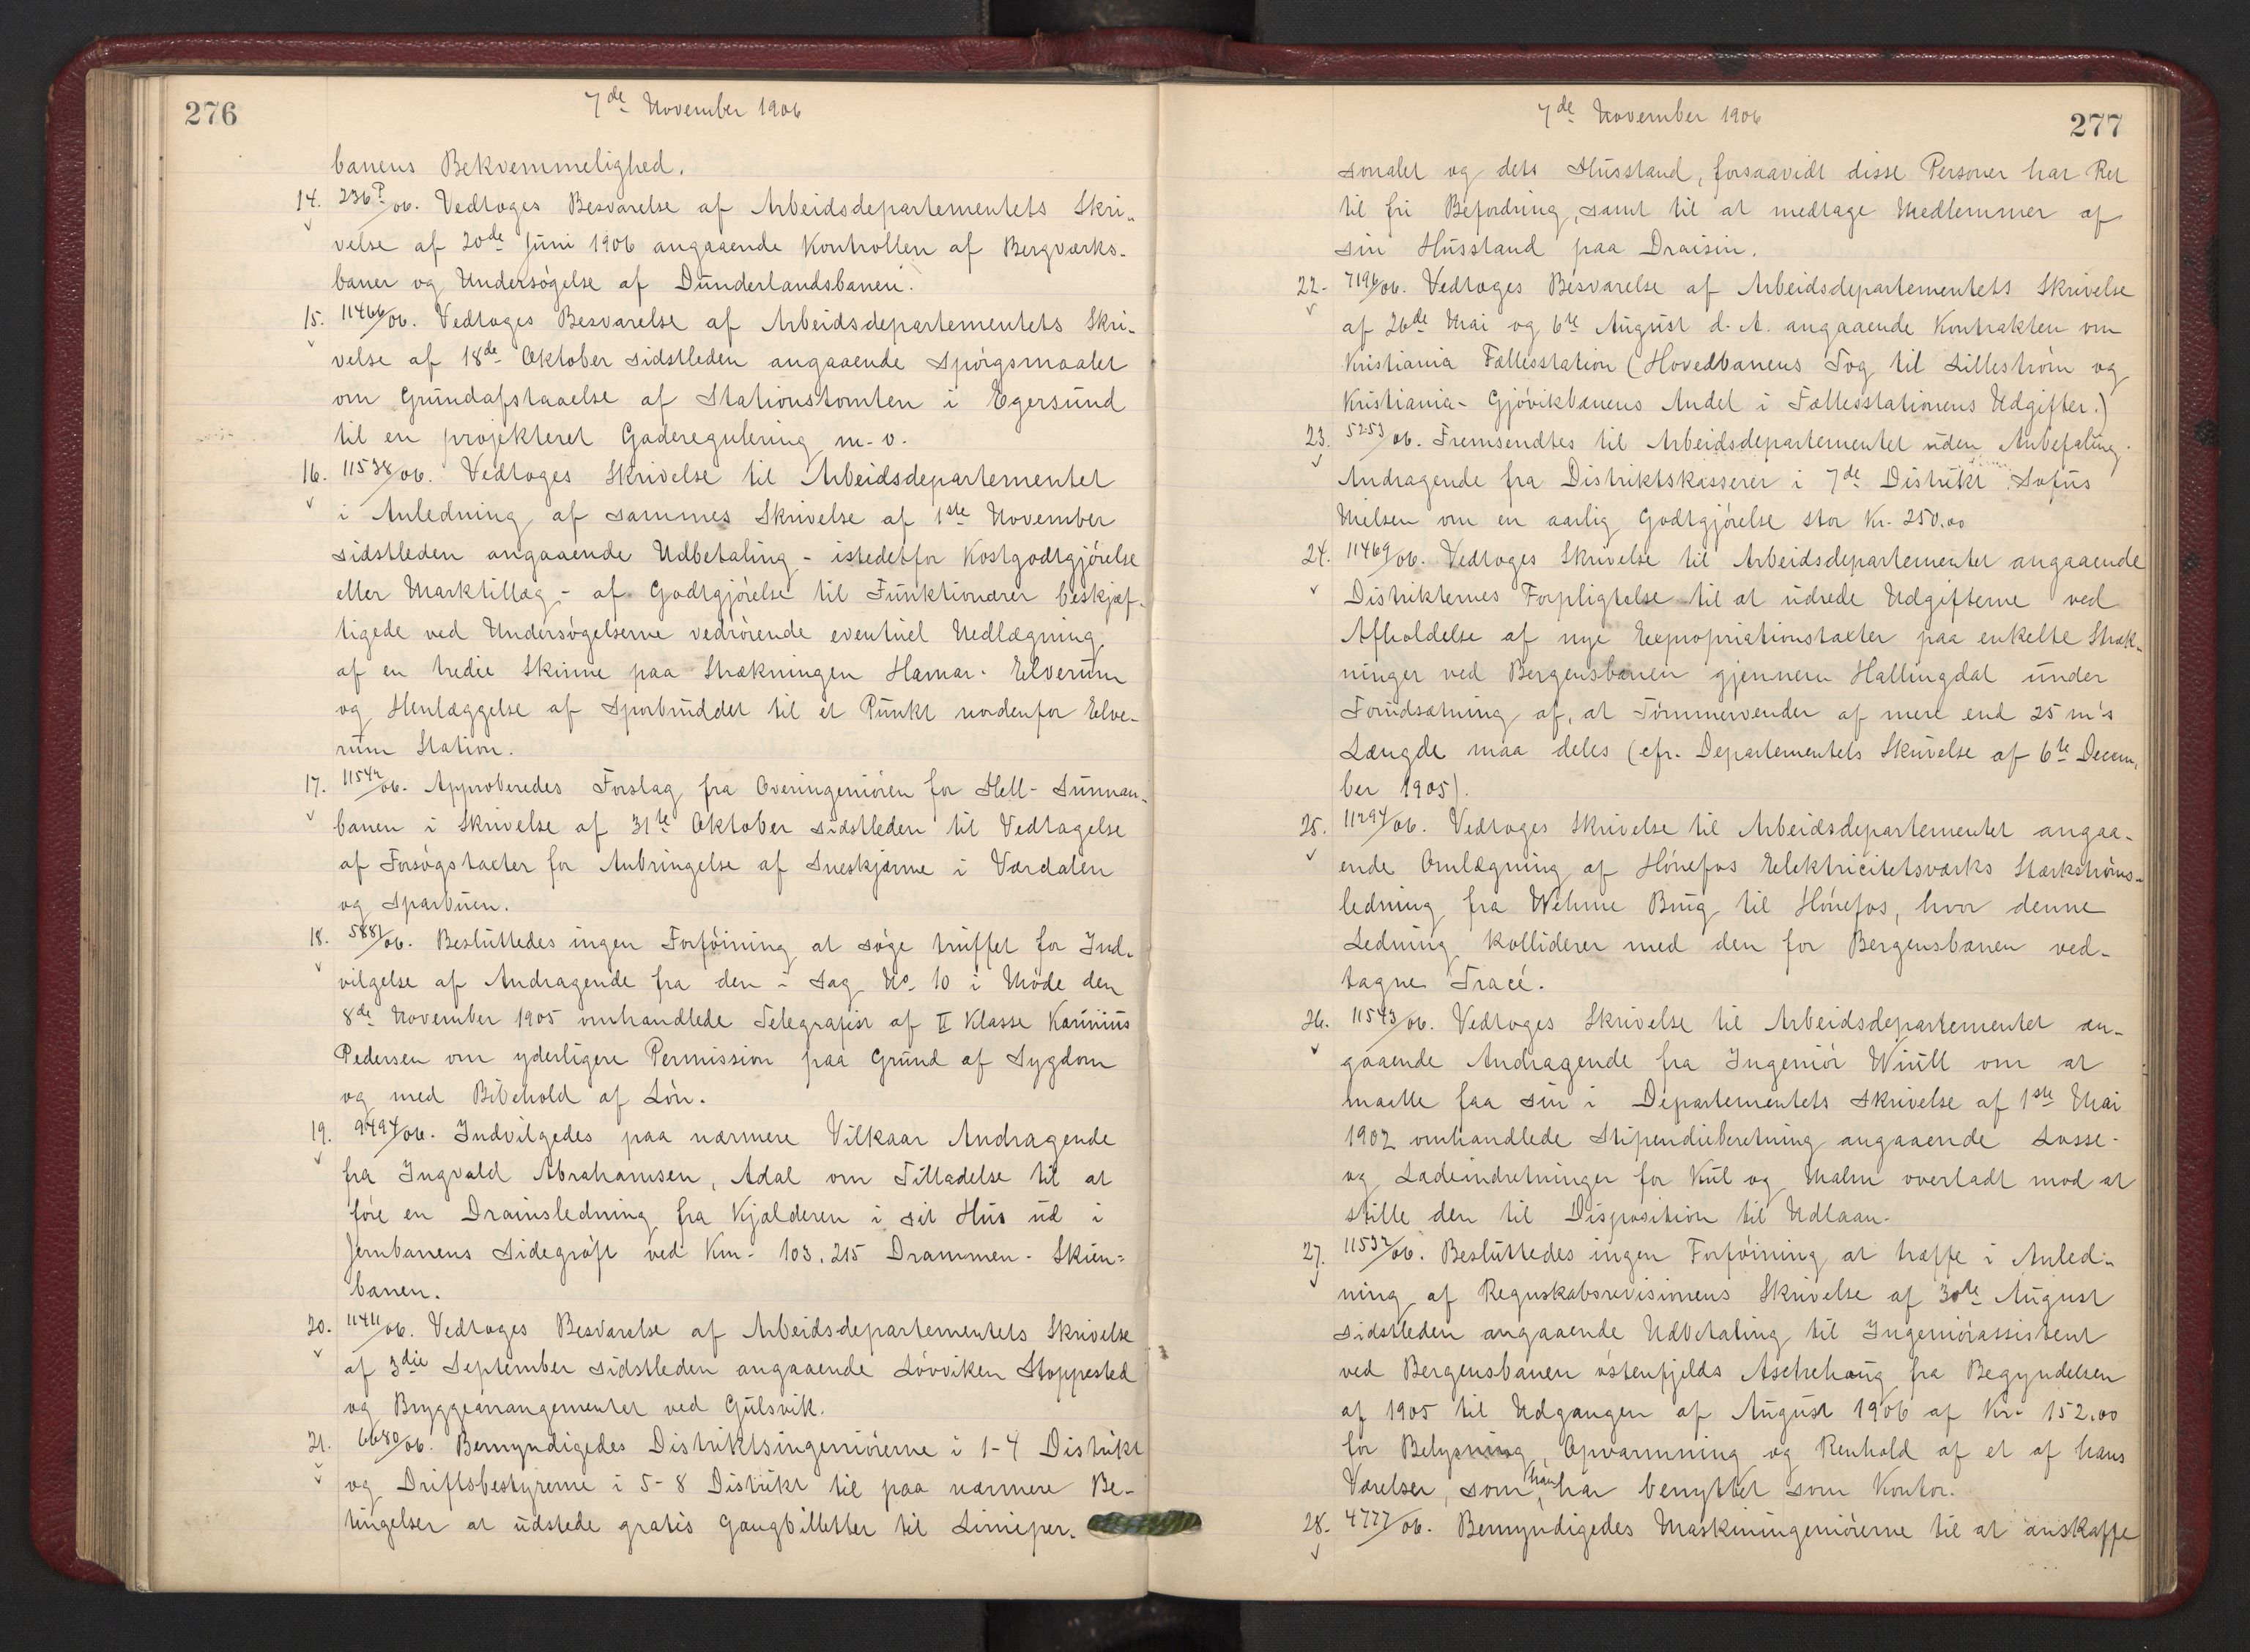 276
7de November 1906
banens Bekvemmelighed.
14. 236P/06. Vedtoges Besvarelse af Arbeidsdepartementets Skri-
velse af 20de Juni 1906 angaaende Kontrollen af Bergværks-
baner og Undersøgelse af Dunderlandsbanen.
15. 11466/06. Vedtoges Besvarelse af Arbeidsdepartementets Skri-
velse af 18de Oktober sidstleden angaaende Spørgsmaalet
om Grundafstaaelse af Stationstomten i Egersund
til en projekteret Gaderegulering m.v.
16. 11538/06. Vedtoges Skrivelse til Arbeidsdepartementet
i Anledning af sammes Skrivelse af 1ste November
sidstleden angaaende Udbetaling - istedetfor Kostgodtgjørelse
eller Marktillæg - af Godtgjørelse til Funktionærer beskjæf-
tigede ved Undersøgelserne vedrørende eventuel Nedlægning
af en tredie Skinne paa Strækningen Hamar - Elverum
og Henlæggelse af Sporbruddet til et Punkt nordenfor Elve-
rum Station.
17. 11542/06. Approberedes Forslag fra Overingeniøren for Hell - Sunnan-
banen i Skrivelse af 31te Oktober sidstleden til Vedtagelse
af Forsøgstaxter for Anbringelse af Sneskjærme i Værdalen
og Sparbuen.
18. 5881/06. Besluttedes ingen Forføining at søge truffet for Ind-
vilgelse af Andragende fra den i Sag No. 10 i Møde den
8de November 1905 omhandlede Telegrafist af II Klasse Karinius
Pedersen om yderligere Permission paa Grund af Sygdom
og med Bibehold af Løn.
19. 9494/06. Indvilgedes paa nærmere Vilkaar Andragende
fra Ingvald Abrahamsen, Adal om Tilladelse til at
føre en Drainsledning fra Kjælderen i sit Hus ud i
Jernbanens Sidegrøft ved Km. 103.215 Drammen - Skien-
banen.
20. 11411/06. Vedtoges Besvarelse af Arbeidsdepartementets Skrivelse
af 3die September sidstleden angaaende Løvviken Stoppested
og Bryggearrangementet ved Gulsvik.
21. 6680/06. Bemyndigedes Distriktsingeniørerne i 1-4 Distrikt
og Driftsbestyrerne i 5-8 Distrikt til paa nærmere Be-
tingelser at udstede gratis Gangbilletter til Linieper-
277
7de November 1906
sonalet og dets Husstand, forsaavidt disse Personer har Ret
til fri Befordring, samt til at medtage Medlemmer af
sin Husstand paa Draisin.
22. 7196/06. Vedtoges Besvarelse af Arbeidsdepartementets Skrivelse
af 26de Mai og 6te August d. A. angaaende Kontrakten om
Kristiania Fællesstation (Hovedbanens Tog til Lillestrøm og
Kristiania - Gjøvikbanens Andel i Fællesstationens Udgifter.)
23. 5253/06. Fremsendtes til Arbeidsdepartementet uden Anbefaling
Andragende fra Distriktskasserer i 7de Distrikt Sofus
Nielsen om en aarlig Godtgjørelse stor Kr. 250.00
24. 11469/06. Vedtoges Skrivelse til Arbeidsdepartementet angaaende
Distrikternes Forpligtelse til at udrede Udgifterne ved
Afholdelse af nye Expropriationstaxter paa enkelte Stræk-
ninger ved Bergensbanen gjennem Hallingdal under
Forudsætning af, at Tømmervender af mere end 25 m's
Længde maa deles (cfr. Departementets Skrivelse af 6te Decem-
ber 1905).
25. 11294/06. Vedtoges Skrivelse til Arbeidsdepartementet angaa-
ende Omlægning af Hønefos Elektricitetsværks Stærkstrøms-
ledning fra Wehme Brug til Hønefos, hvor denne
Ledning kolliderer med den for Bergensbanen ved-
tagne Tracé.
26. 11543/06. Vedtoges Skrivelse til Arbeidsdepartementet an-
gaaende Andragende fra Ingeniør Wiull om at
maatte faa sin i Departementets Skrivelse af 1ste Mai
1902 omhandlede Stipendieberetning angaaende Losse-
og Ladeindretninger for Kul og Malm overladt mod at
stille den til Disposition til Udlaan.
27. 11532/06. Besluttedes ingen Forføining at træffe i Anled-
ning af Regnskabsrevisionens Skrivelse af 30te August
sidstleden angaaende Udbetaling til Ingeniørassistent
ved Bergensbanen østenfjelds Aschehoug fra Begyndelsen
af 1905 til Udgangen af August 1906 af Kr. 152.00
for Belysning, Opvarmning og Renhold af et af hans
Værelser, som han har benyttet som Kontor.
28. 4777/06. Bemyndigedes Maskiningeniørerne til at anskaffe